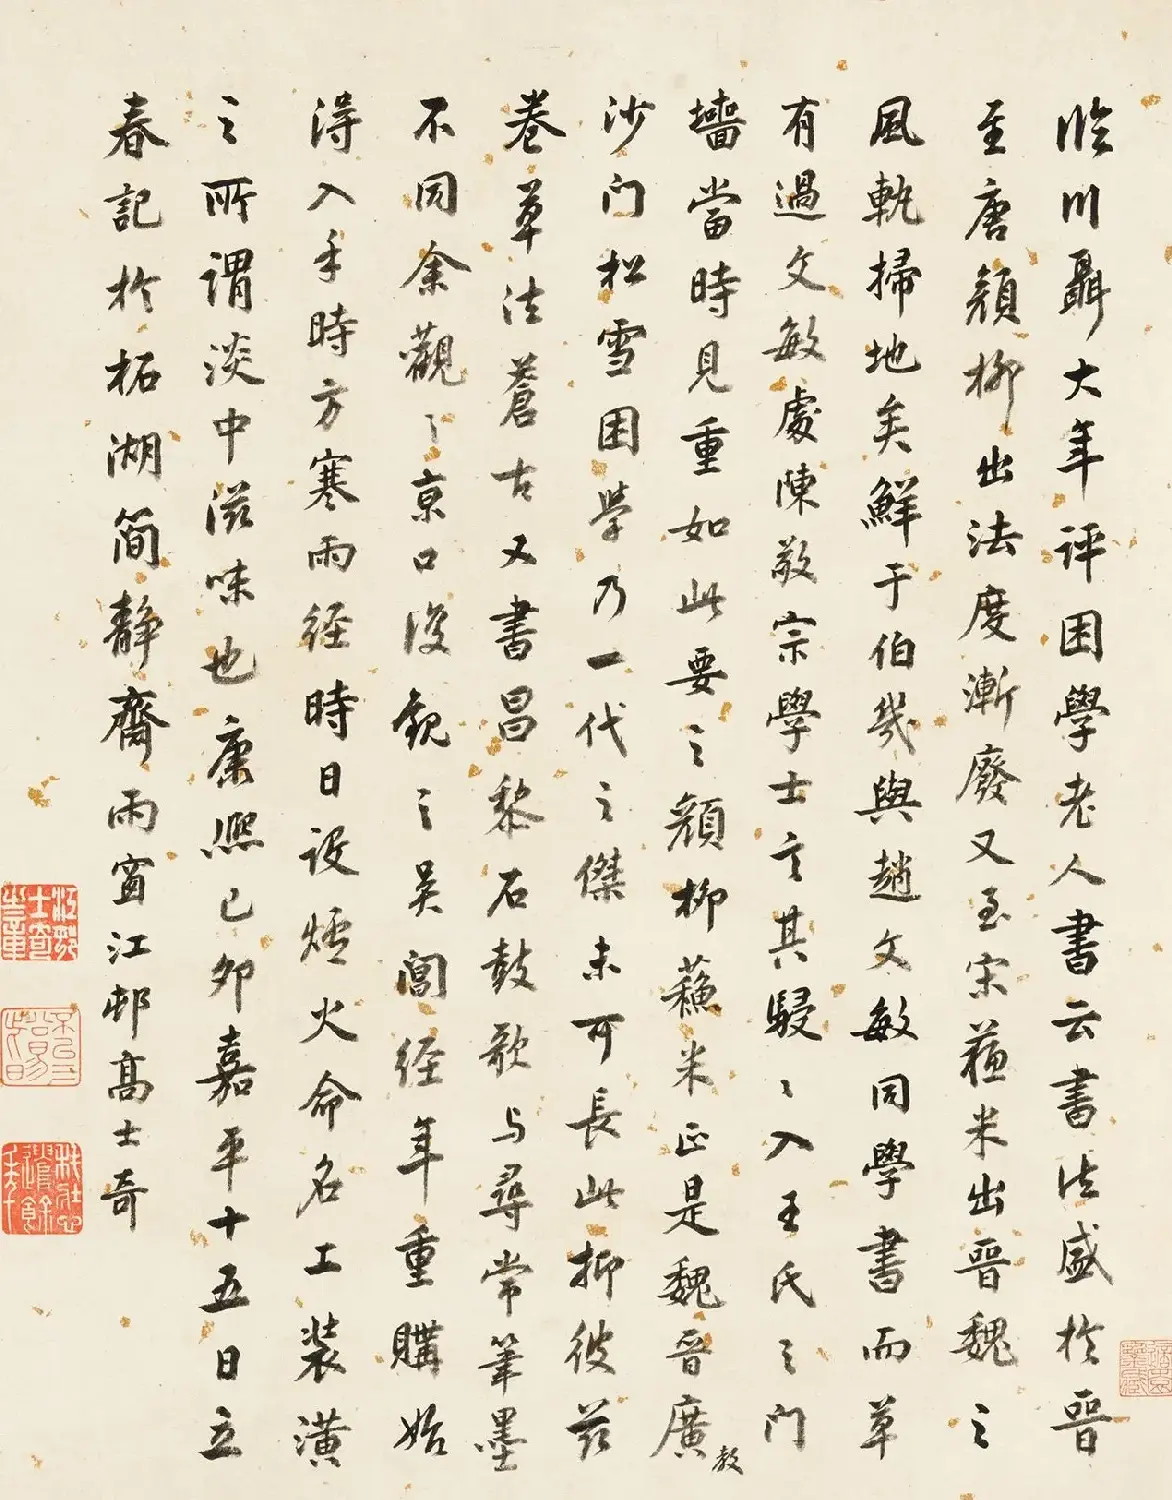 臨川聶大年評困學老人書云書法盛於晉
至唐顏柳出法度漸廢又至宋蘓米出晉魏之
風軌掃地矣鮮于伯幾與趙文敏同學書而草
有過文敏處陳敬宗學士言其駸〻入王氏之門
墻當時見重如此要之顏柳蘓米正是魏晉廣教
沙门松雪困學乃一代之傑未可長此抑彼茲
卷草法蒼古又書昌黎石鼓歌与尋常筆墨
不同余觀之京口後觀之吳閶經年重購始
淂入手時方寒雨経時日設爐火命名工裝潢
之所謂淡中滋味也康熙己卯嘉平十五日立
春記於柘湖簡靜齋雨窗江邨高士奇